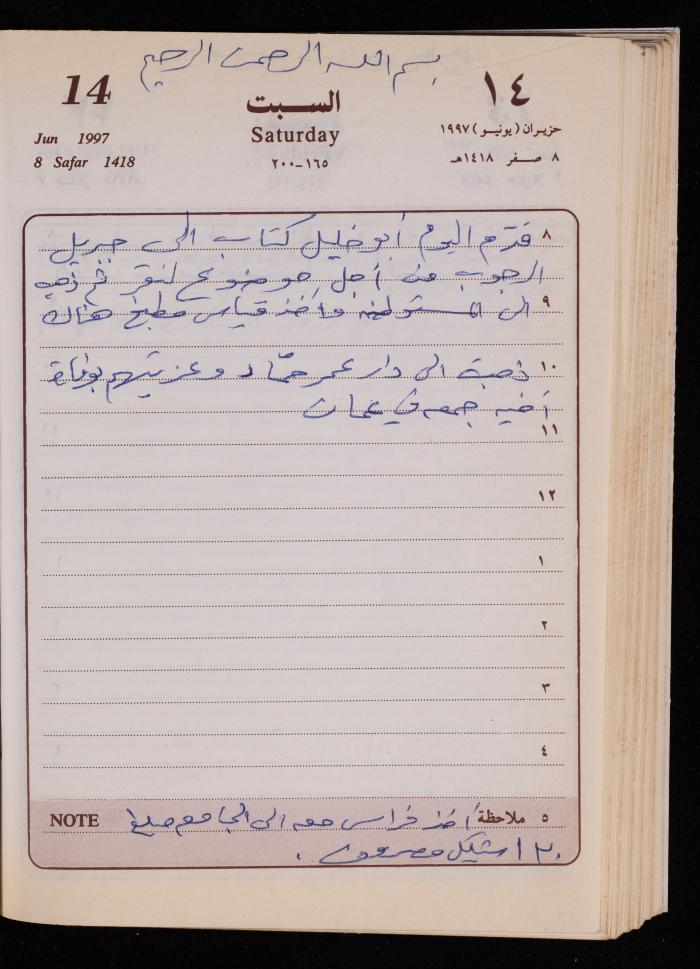 بسم الله الرحمن الرحيم
14
السبت
١٤
Jun 1997
Saturday
حزيران (يونيو) ١٩٩٧
8 Safar 1418
١٦٥-٢٠٠
٨ صفر ١٤١٨هـ
٨ قدّم اليوم أبو خليل كتاب الى جبريل
الرجوب من أجل موضوع لنقر ثم ذهب
٩ الى المستوطنه وأخذ قياس مطبخ هناك
١٠ ذهبت الى دار عمر حمّاد وعزيتهم بوفاة
أخيه جمعه في عمان
١١
١٢
١
٢
٣
٤
NOTE ٥ ملاحظة أخذ فراس معه الى الجامعه مبلغ
١٢٠ شيكل مصروف .